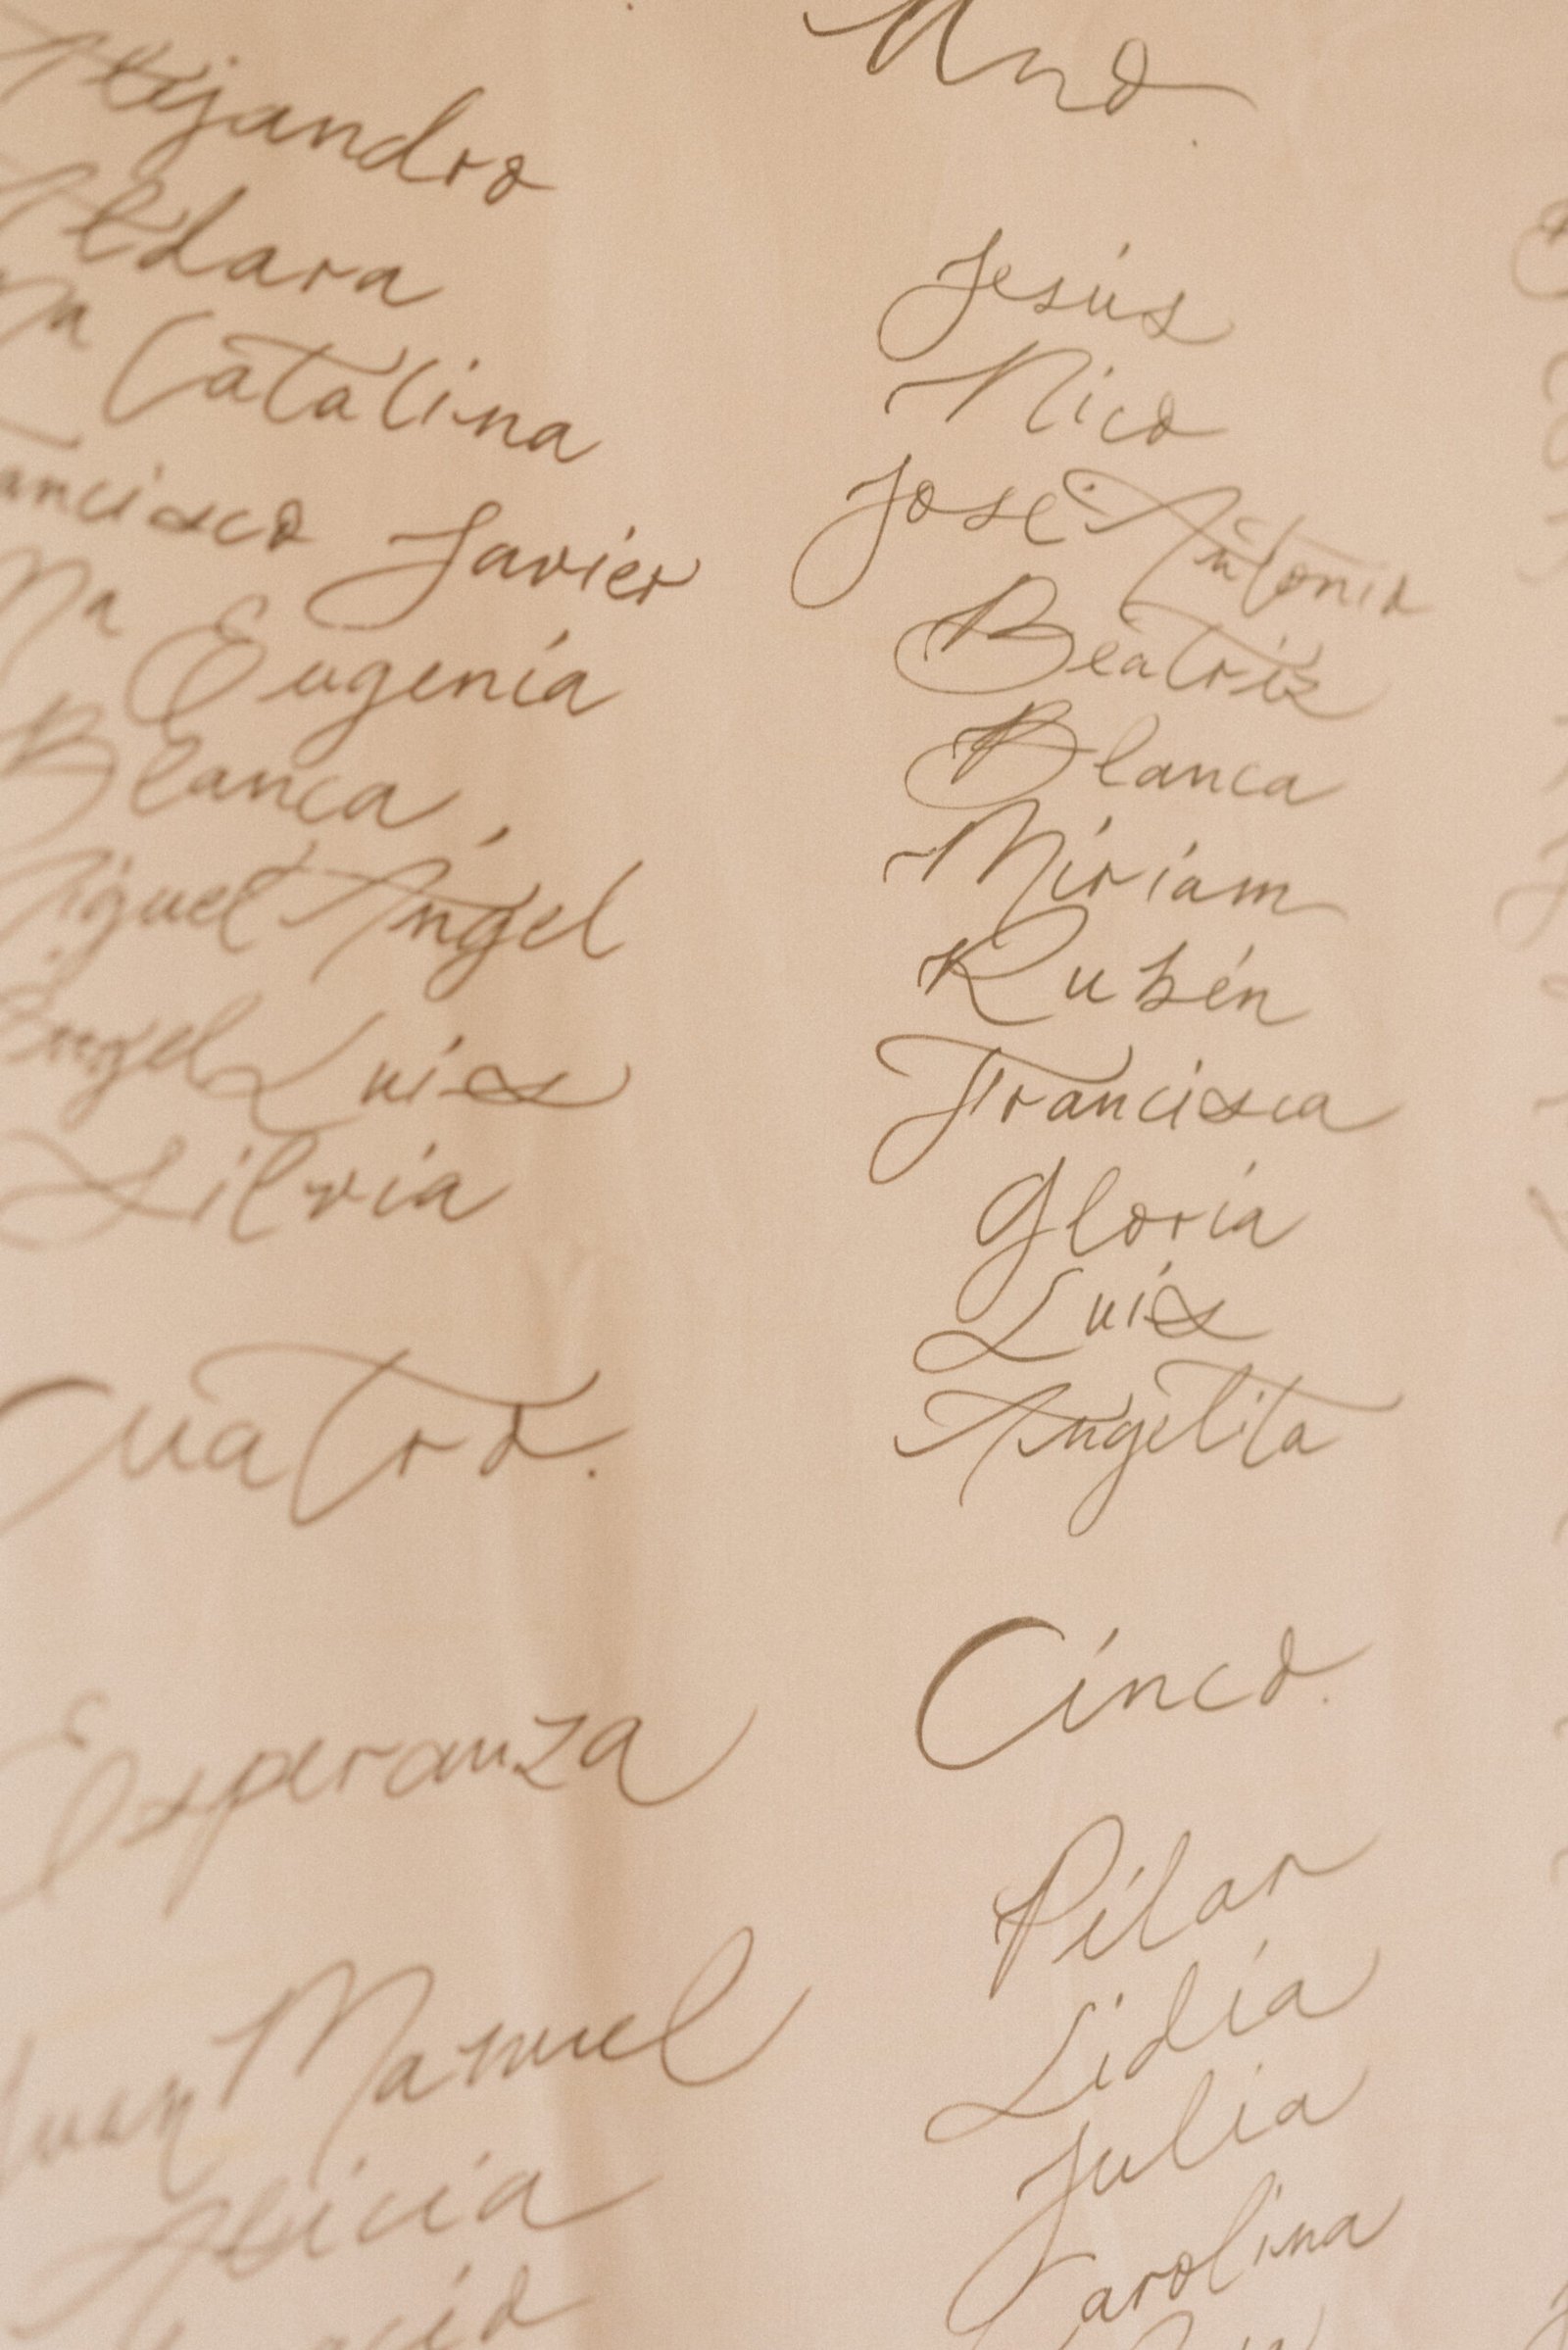 Alejandro
Aldara
Mª Catalina
Francisco Javier
Mª Eugenia
Blanca
Miguel Ángel
Ángel Luis
Silvia
Cuatro.
Esperanza
Juan Manuel
Alicia
Uno.
Jesús
Nico
José Antonio
Beatriz
Blanca
Miriam
Rubén
Francisca
Gloria
Luis
Angelita
Cinco.
Pilar
Lidia
Julia
Carolina